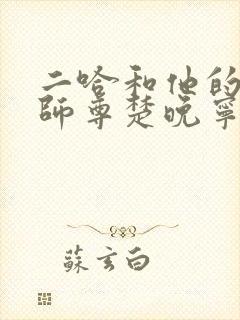 二哈和他的
師尊楚晚寧
蘇玄白